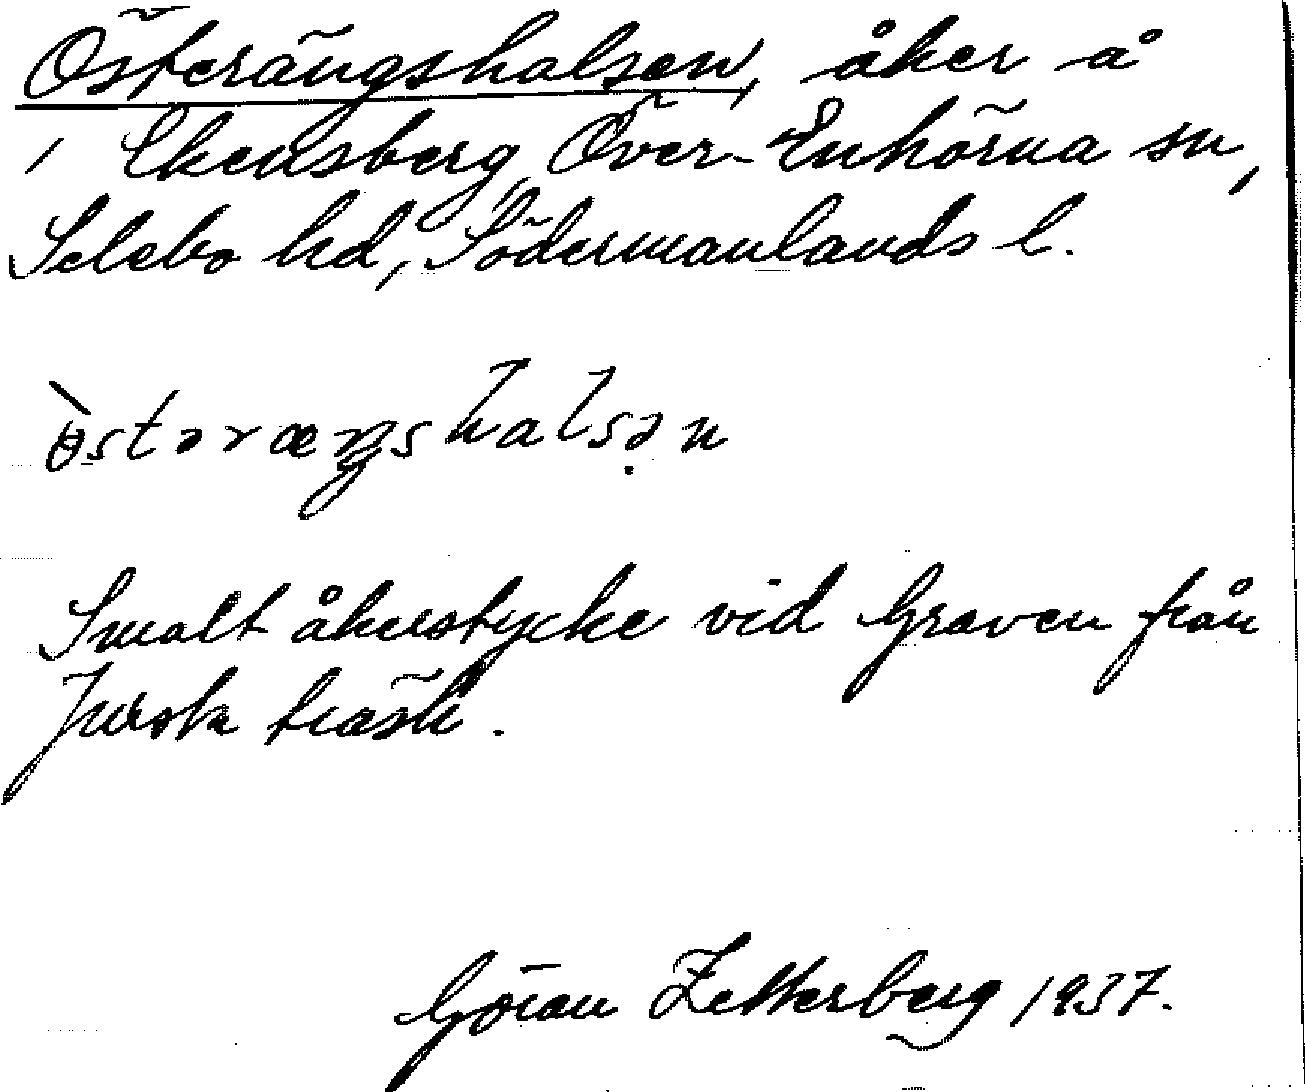 Österängshalsen, åker å
Ekensberg, Över-Enhörna sn,
Selebo hd, Södermanlands l.
ɵ̀stəræŋshalsən
Smalt åkerstycke vid Graven från
Jursta träsk.
Göran Zetterberg 1937.